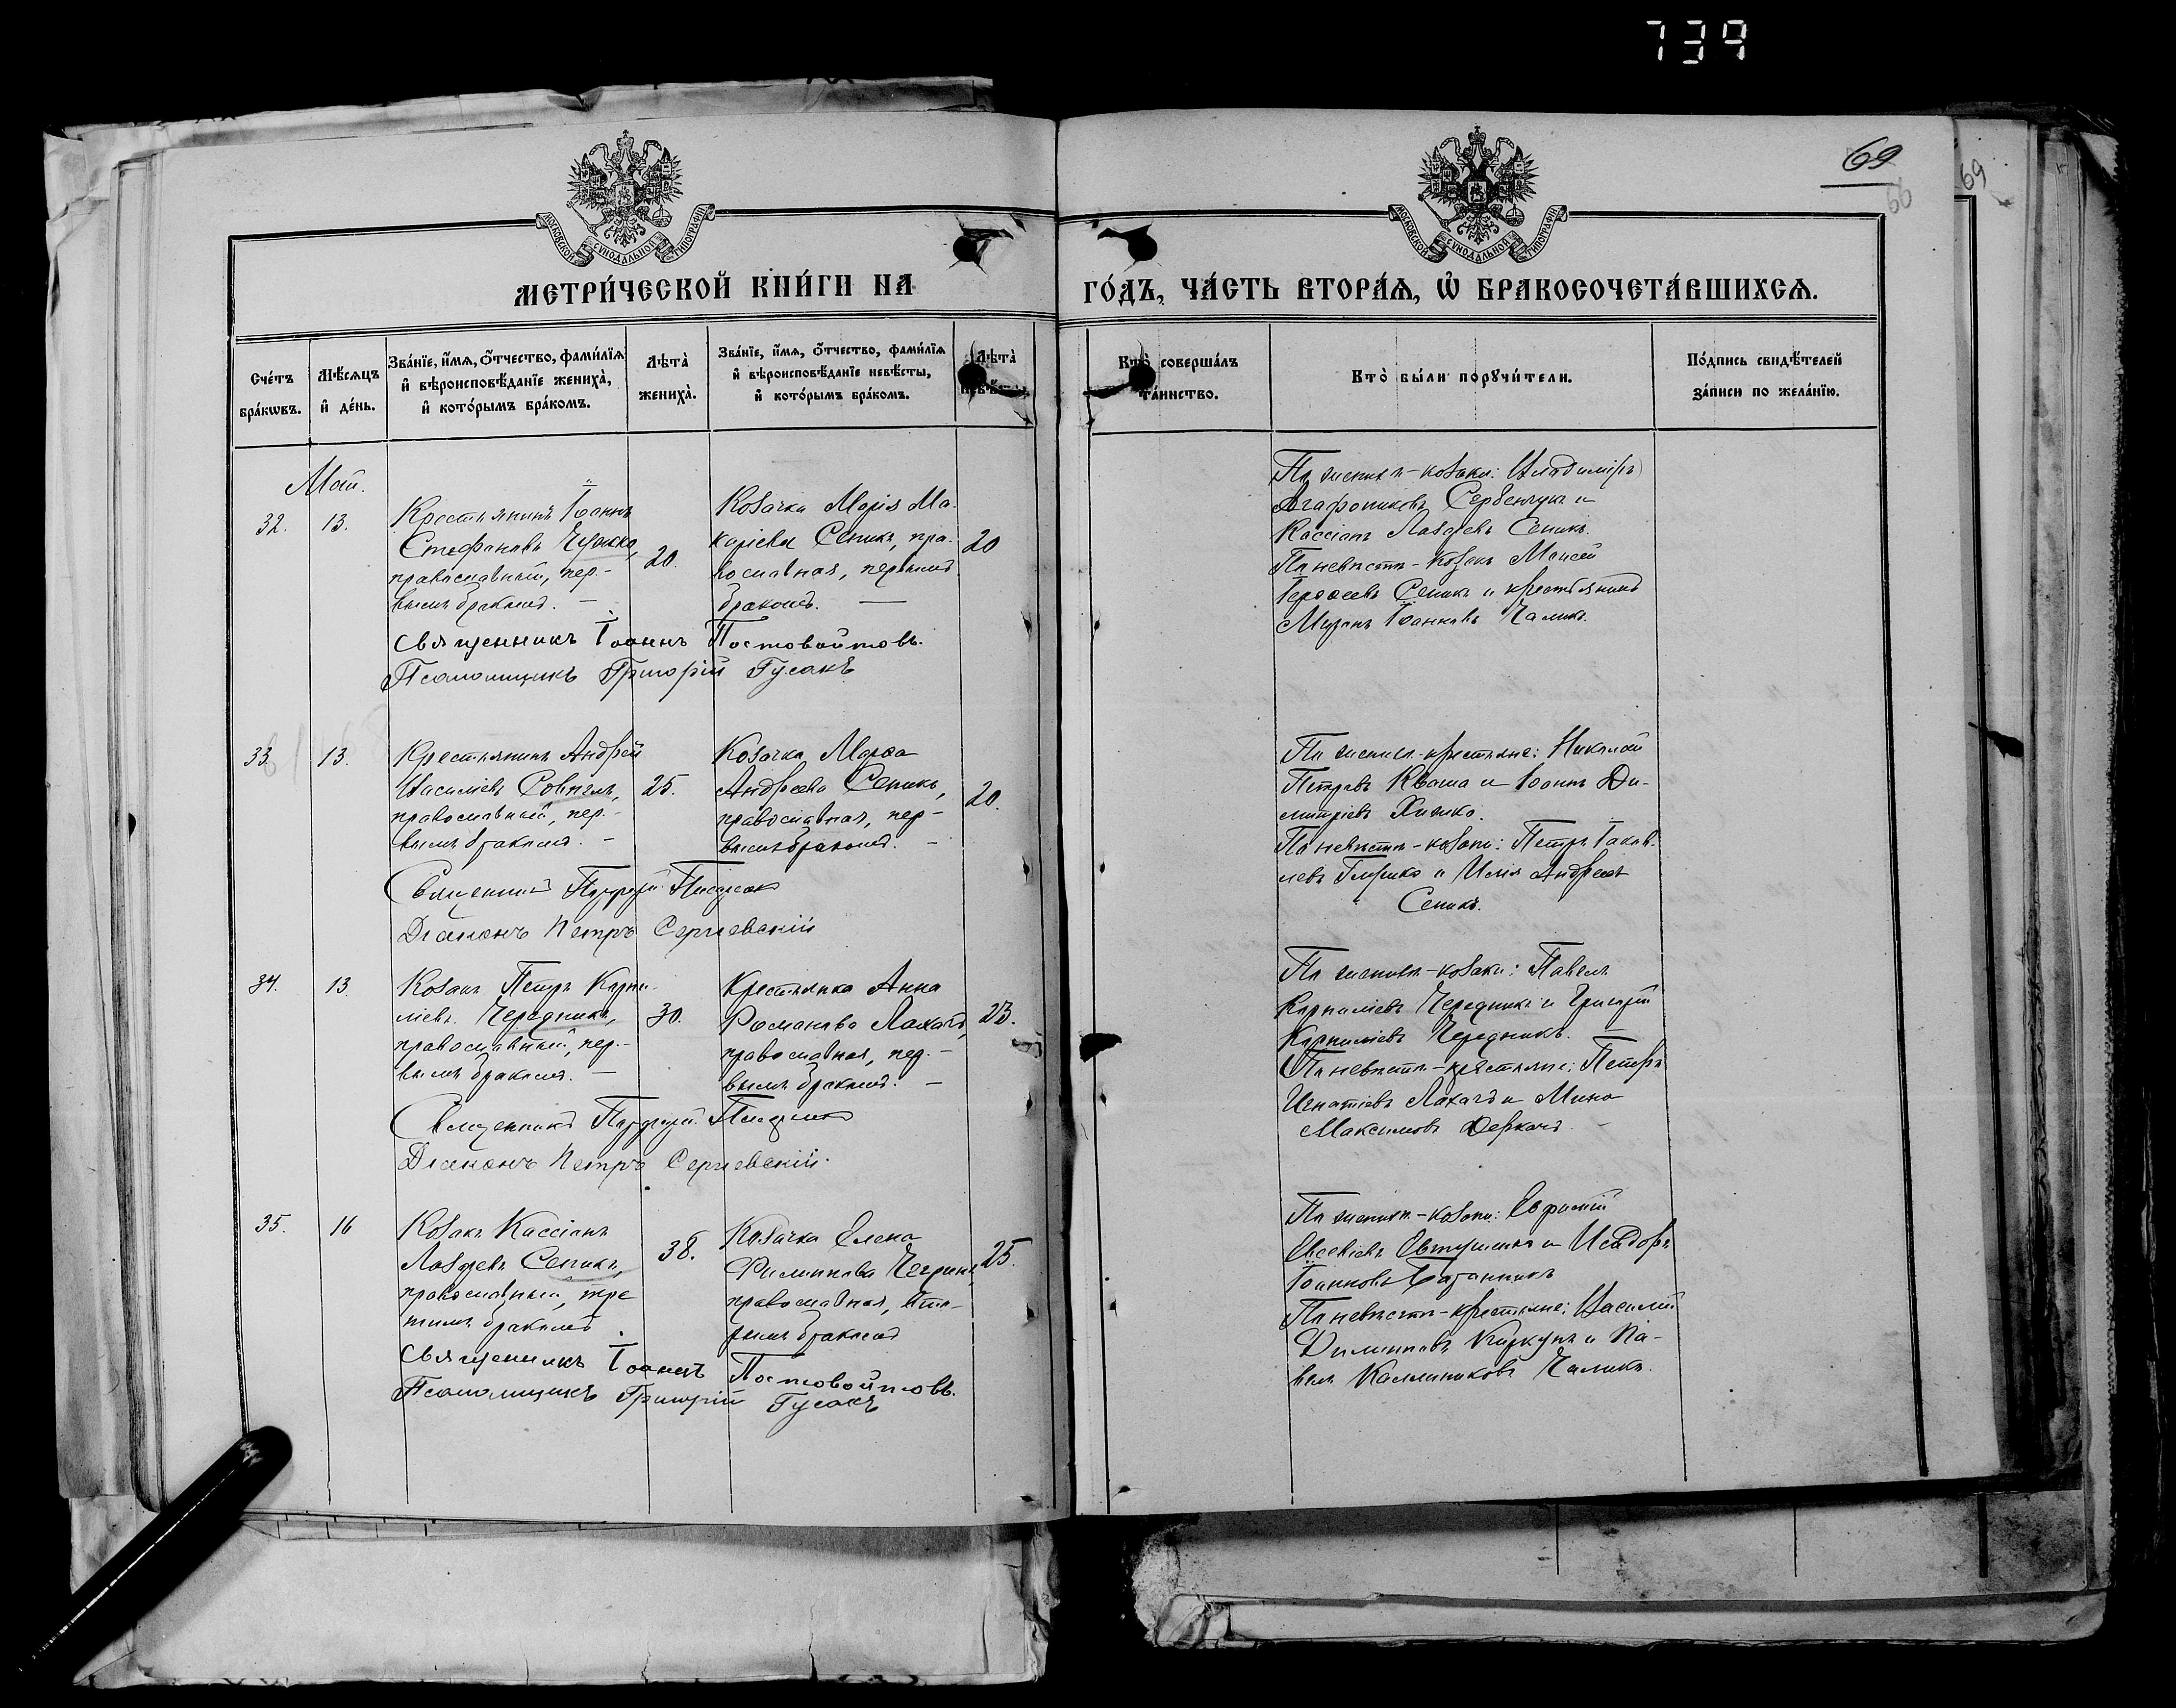 739
69
69
МОСКОВСКОЙ СУНОДАЛЬНОЙ ТИПОГРАФІИ
МОСКОВСКОЙ СУНОДАЛЬНОЙ ТИПОГРАФІИ
МЕТРИ́ЧЕСКОЙ КНИ́ГИ НА
ГО́ДЪ, ЧА́СТЬ ВТОРА́Я, Ѡ БРАКОСОЧЕТА́ВШИХСЯ.
Сче́тъ бра́кѡвъ.
Мѣ́сяцъ и де́нь.
Зва́нїе, и́мя, о́тчество, фами́лїя и вѣроисповѣ́данїе жениха̀, и кото́рымъ бра́комъ.
Лѣта̀ жениха̀.
Зва́нїе, и́мя, о́тчество, фами́лїя и вѣроисповѣ́данїе невѣ́сты, и кото́рымъ бра́комъ.
Лѣта̀
Кто̀ соверша́лъ та́инство.
Кто̀ бы́ли порꙋчи́тели.
По́дпись свидѣ́телей за́писи по жела́нїю.
Май.
32.
13.
Крестьянинъ Іоаннъ
Стефановъ
православный, пер-
вымъ бракомъ. —
20.
Козачка Марія Ма-
каріева Сепикъ, пра-
вославная, первымъ
бракомъ. —
20
Священникъ Іоаннъ Постовойтовъ.
Псаломщикъ Григорій Гусакъ
По женихѣ - козаки: Владиміръ
Агафониковъ и
Кассіанъ Лазаревъ Сепикъ.
По невѣстѣ - козакъ Моисей
Сепикъ и крестьянинъ
Іоанновъ Чаликъ.
33.
13.
Крестьянинъ Андрей
Василіевъ
православный, пер-
вымъ бракомъ. —
25.
Козачка Марѳа
Андреева Сепикъ,
православная, пер-
вымъ бракомъ. —
20.
Священникъ
Діаконъ Петръ Сергіевскій
По женихѣ - крестьяне: Николай
Петровъ Кваша и Іоаннъ Ди-
митріевъ Хижко.
По невѣстѣ - козаки: Петръ Іаков-
левъ и Илія Андреевъ
Сепикъ.
34.
13.
Козакъ Петръ Корни-
ліевъ Чередникъ,
православный, пер-
вымъ бракомъ. —
30.
Крестьянка Анна
Романова
православная, пер-
вымъ бракомъ. —
23.
Священникъ
Діаконъ Петръ Сергіевскій.
По женихѣ - козаки: Павелъ
Корниліевъ Чередникъ и Григорій
Корниліевъ Чередникъ. —
По невѣстѣ - крестьяне: Петръ
Игнатіевъ и Мина
Максимовъ Деркачъ.
35.
16
Козакъ Кассіанъ
Лазаревъ Сепикъ,
православный, тре-
тимъ бракомъ.
38.
Козачка Елена
Филиппова
православная, вто-
рымъ бракомъ
25.
Священникъ Іоаннъ Постовойтовъ.
Псаломщикъ Григорій Гусакъ
По женихѣ - козаки: Евфимій
Евсевіевъ Евтушенко и Исидоръ
Іоанновъ
По невѣстѣ - крестьяне: Василій
Филипповъ и Па-
велъ Каллиниковъ Чаликъ.